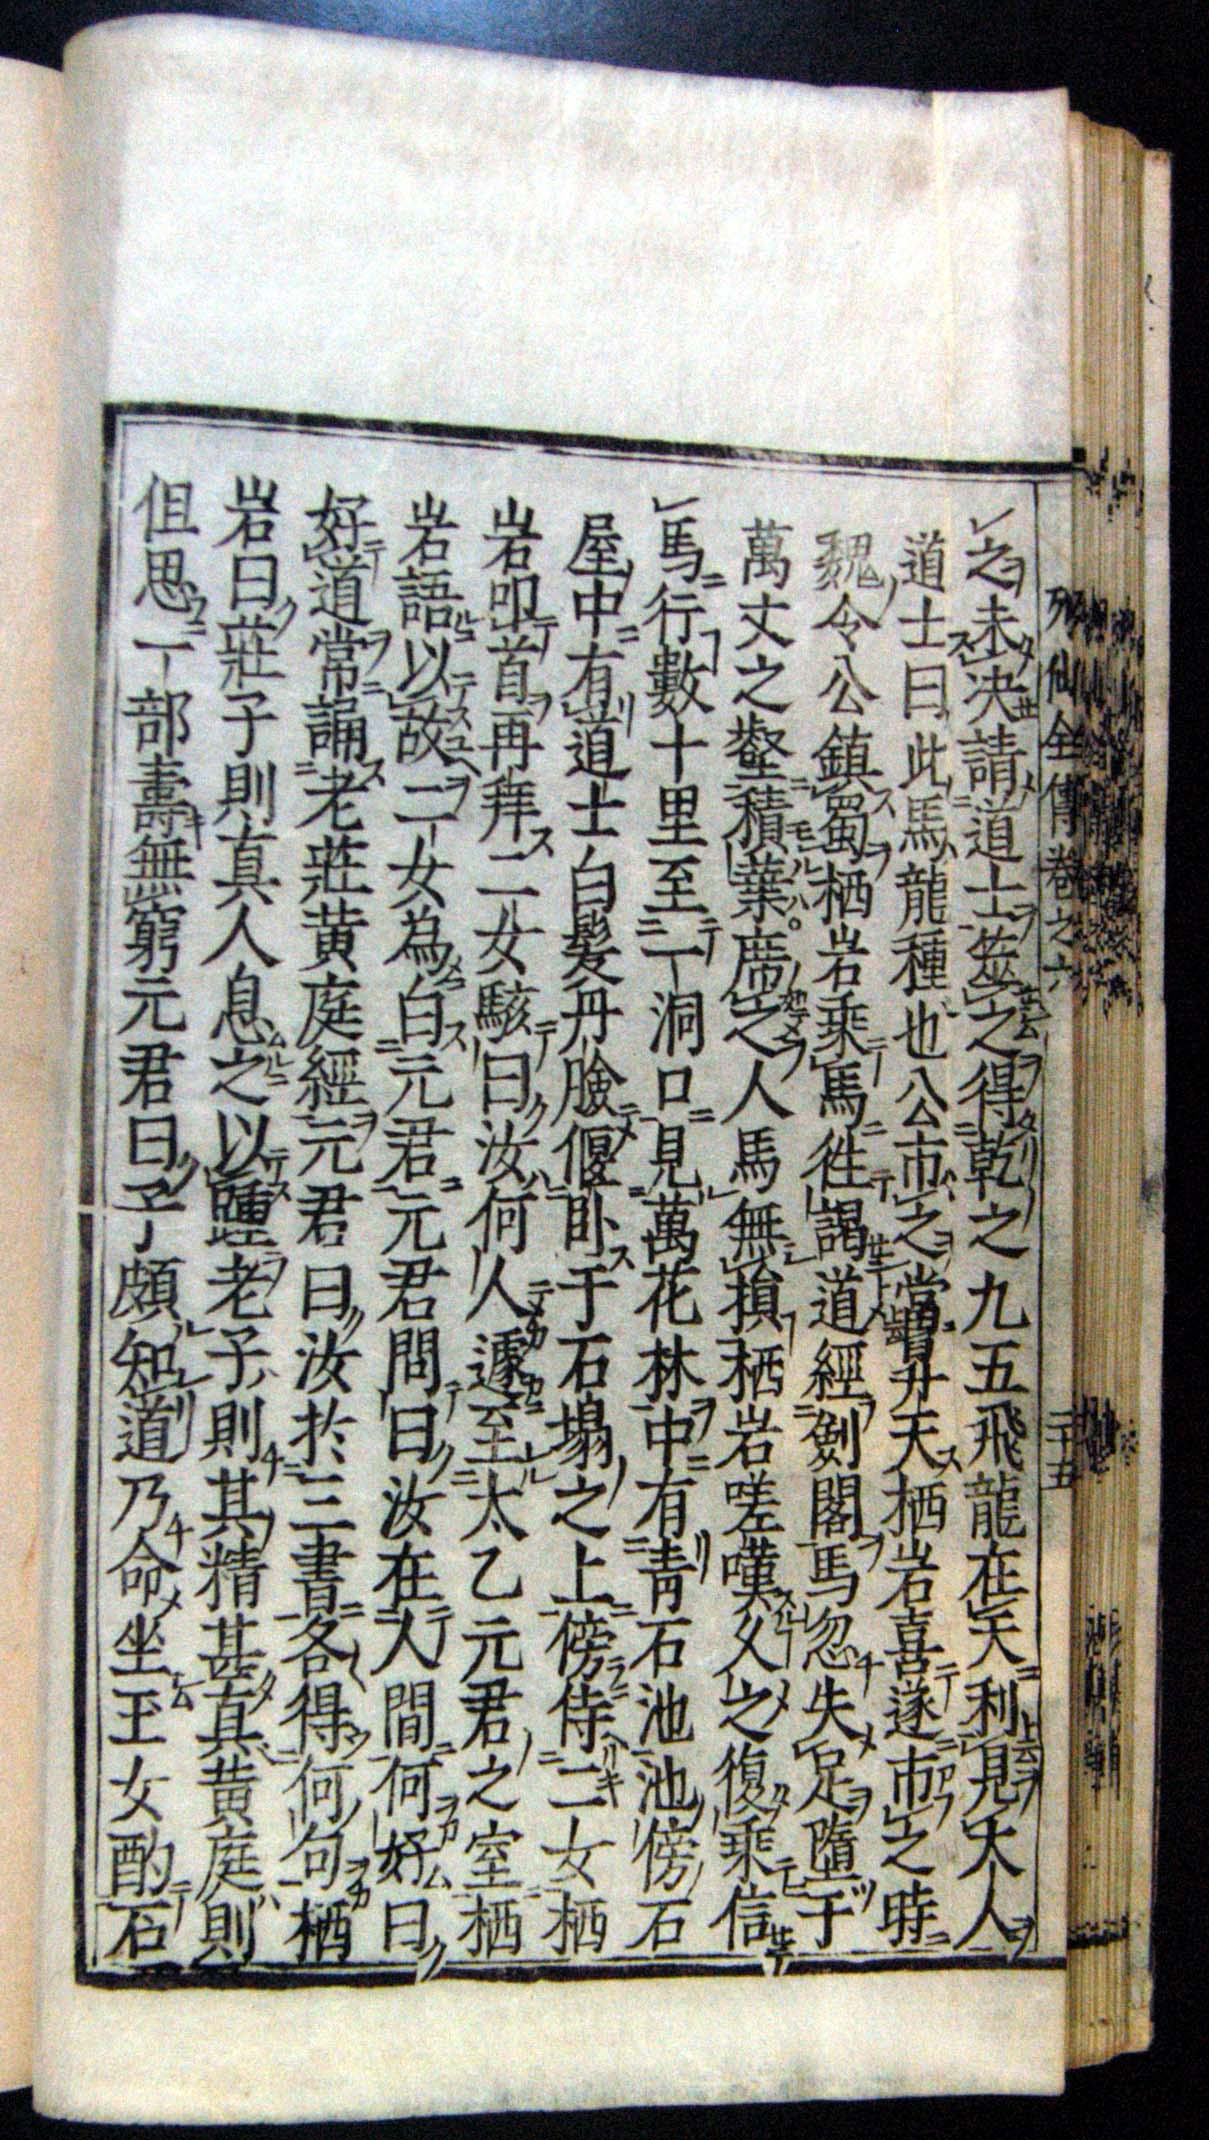 之未决請道士筮之得乾之九五飛龍在天利見大人
道士曰此馬龍種也公市之當升天栖岩喜遂市之時
魏令公鎮蜀栖岩乘馬徃謁道經劍閣馬忽失足墮于
萬丈之壑積葉席之人馬無損栖岩嗟嘆久之復乘信
馬行數十里至一洞口見萬花林中有青石池池傍石
屋中有道士白髮丹臉偃卧于石塌之上傍侍二女栖
岩叩首再拜二女駭曰汝何人遽至太乙元君之室栖
岩語以故二女為白元君元君問曰汝在人間何好曰
好道常誦老莊黄庭經元君曰汝於三書各得何句栖
岩曰莊子則真人息之以踵老子則其精甚真黄庭則
但思一部壽無窮元君曰子頗知道乃命坐玉女酌石
列仙全傳卷之六 二十五